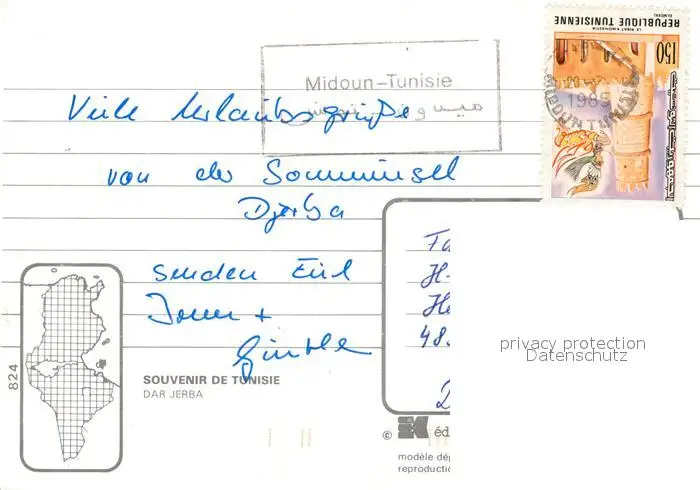 REPUBLIQUE TUNISIENNE
LE RIBAT MONASTIR
150
Midoun-Tunisie
ميدون تونس
1985
MIDOUN TUNISIE
Viele Urlaubsgrüße
von der Sonneninsel
Djerba
senden Euch
+
Günther
Fa
H-
He
48
D
privacy protection
Datenschutz
824
SOUVENIR DE TUNISIE
DAR JERBA
© éd
modèle dép
reproductio